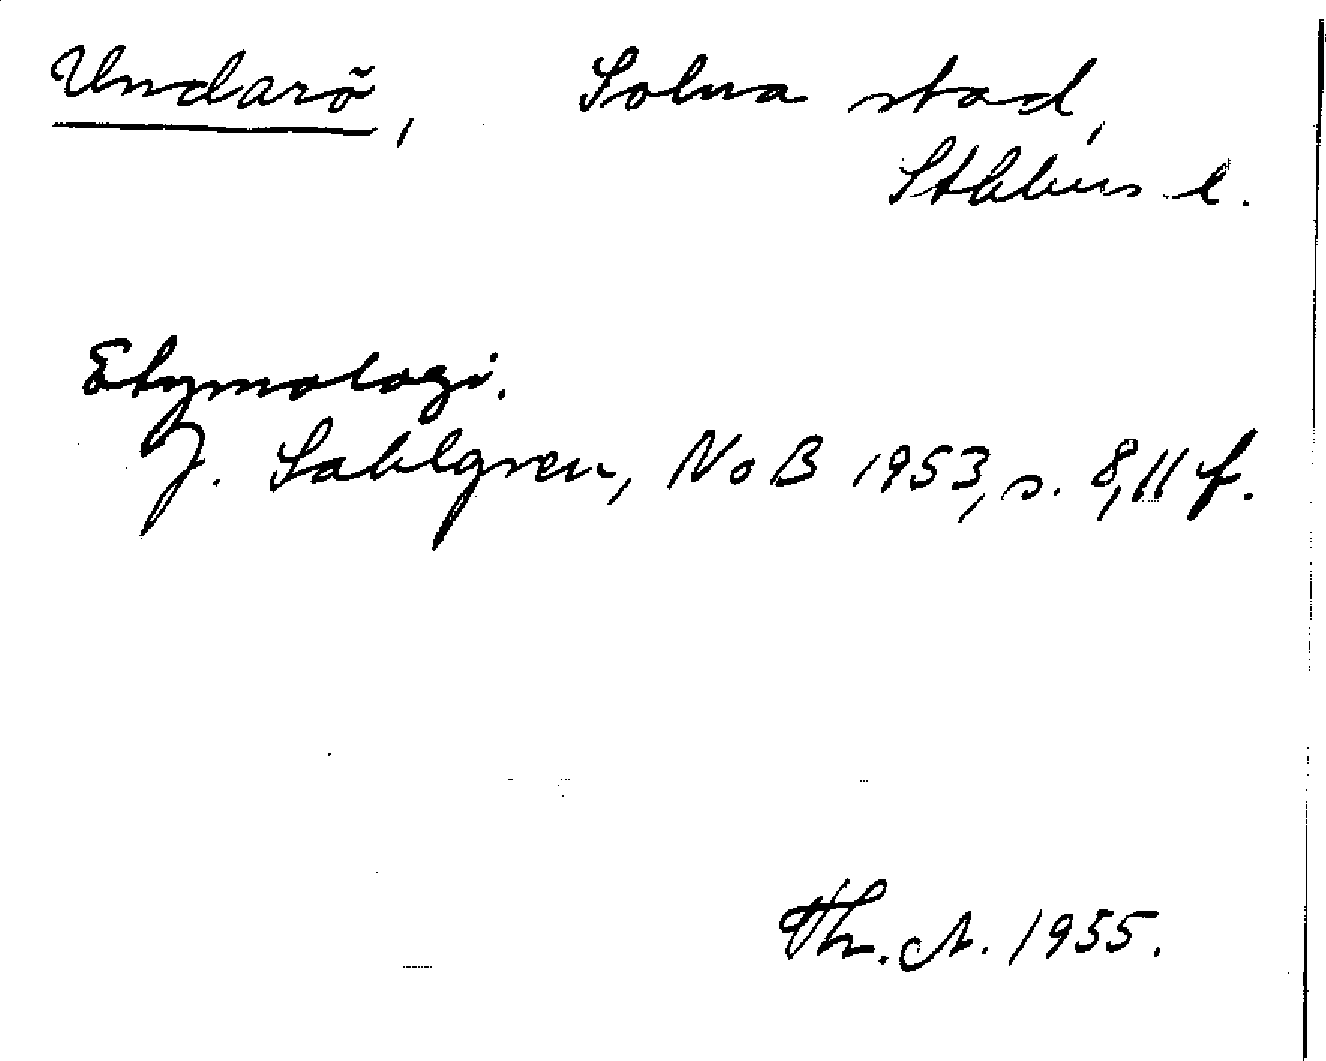 Undarö, Solna stad,
Sthlms l.
Etymologi.
J. Sahlgren, NoB 1953, s. 8, 11 f.
Th. A. 1955.